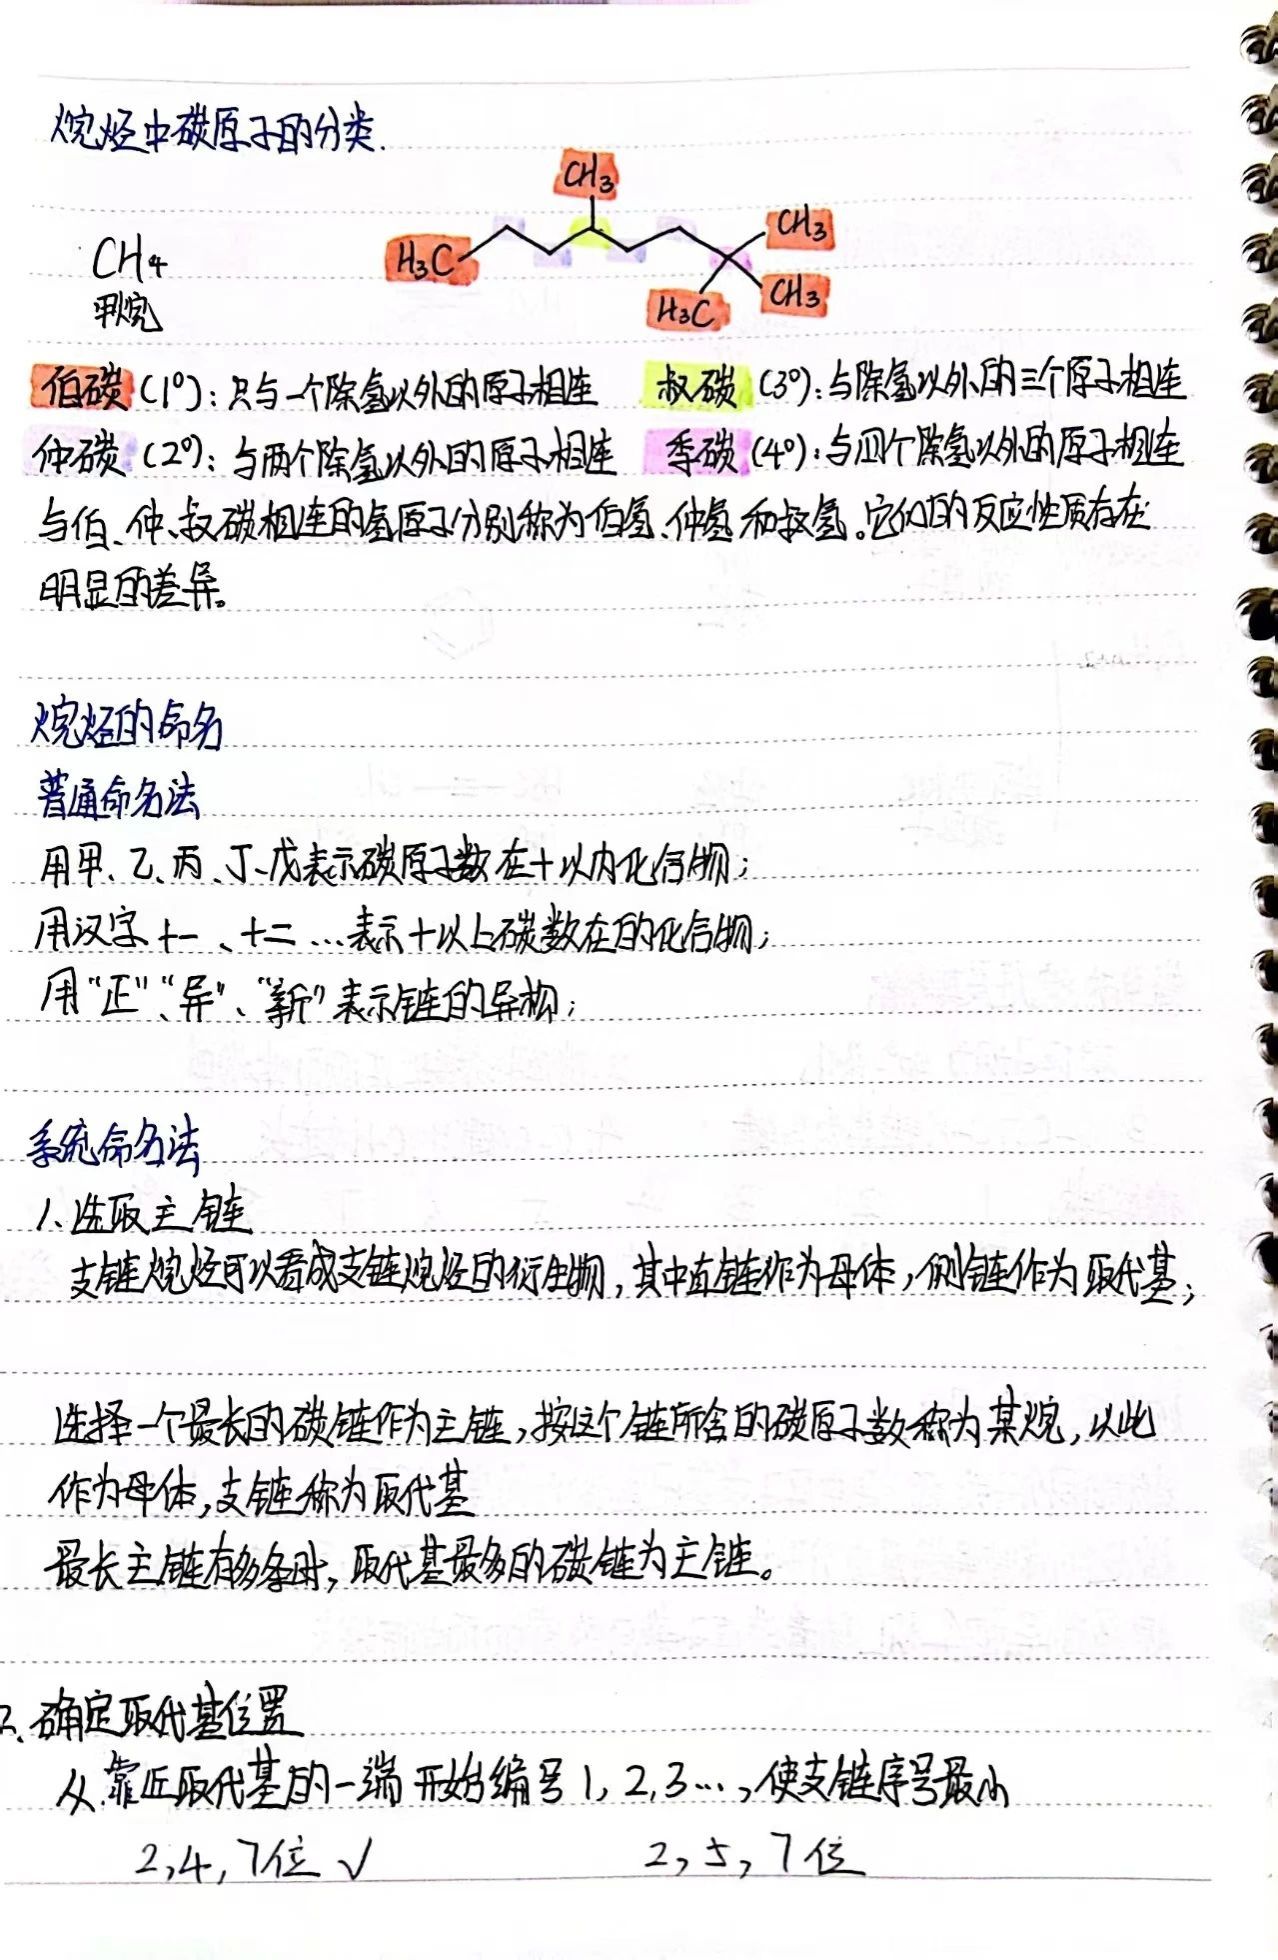 烷烃中碳原子的分类.
CH3
H3C
CH3
CH4
CH3
H3C
甲烷
伯碳(1°):只与一个除氢以外的原子相连 叔碳(3°):与除氢以外的三个原子相连
仲碳(2°):与两个除氢以外的原子相连 季碳(4°):与四个除氢以外的原子相连
与伯、仲、叔碳相连的氢原子分别称为伯氢、仲氢和叔氢。它们的反应性质存在
明显的差异。
烷烃的命名
普通命名法
用甲、乙、丙、丁、戊表示碳原子数在十以内化合物;
用汉字十一、十二...表示十以上碳数在的化合物;
用“正”、“异”、“新”表示链的异构;
系统命名法
1、选取主链
支链烷烃可以看成支链烷烃的衍生物,其中直链作为母体,侧链作为取代基;
选择一个最长的碳链作为主链,按这个链所含的碳原子数称为某烷,以此
作为母体,支链称为取代基
最长主链有多条时,取代基最多的碳链为主链。
2、确定取代基位置
从靠近取代基的一端开始编号1,2,3...,使支链序号最小
2,4,7位√ 2,5,7位